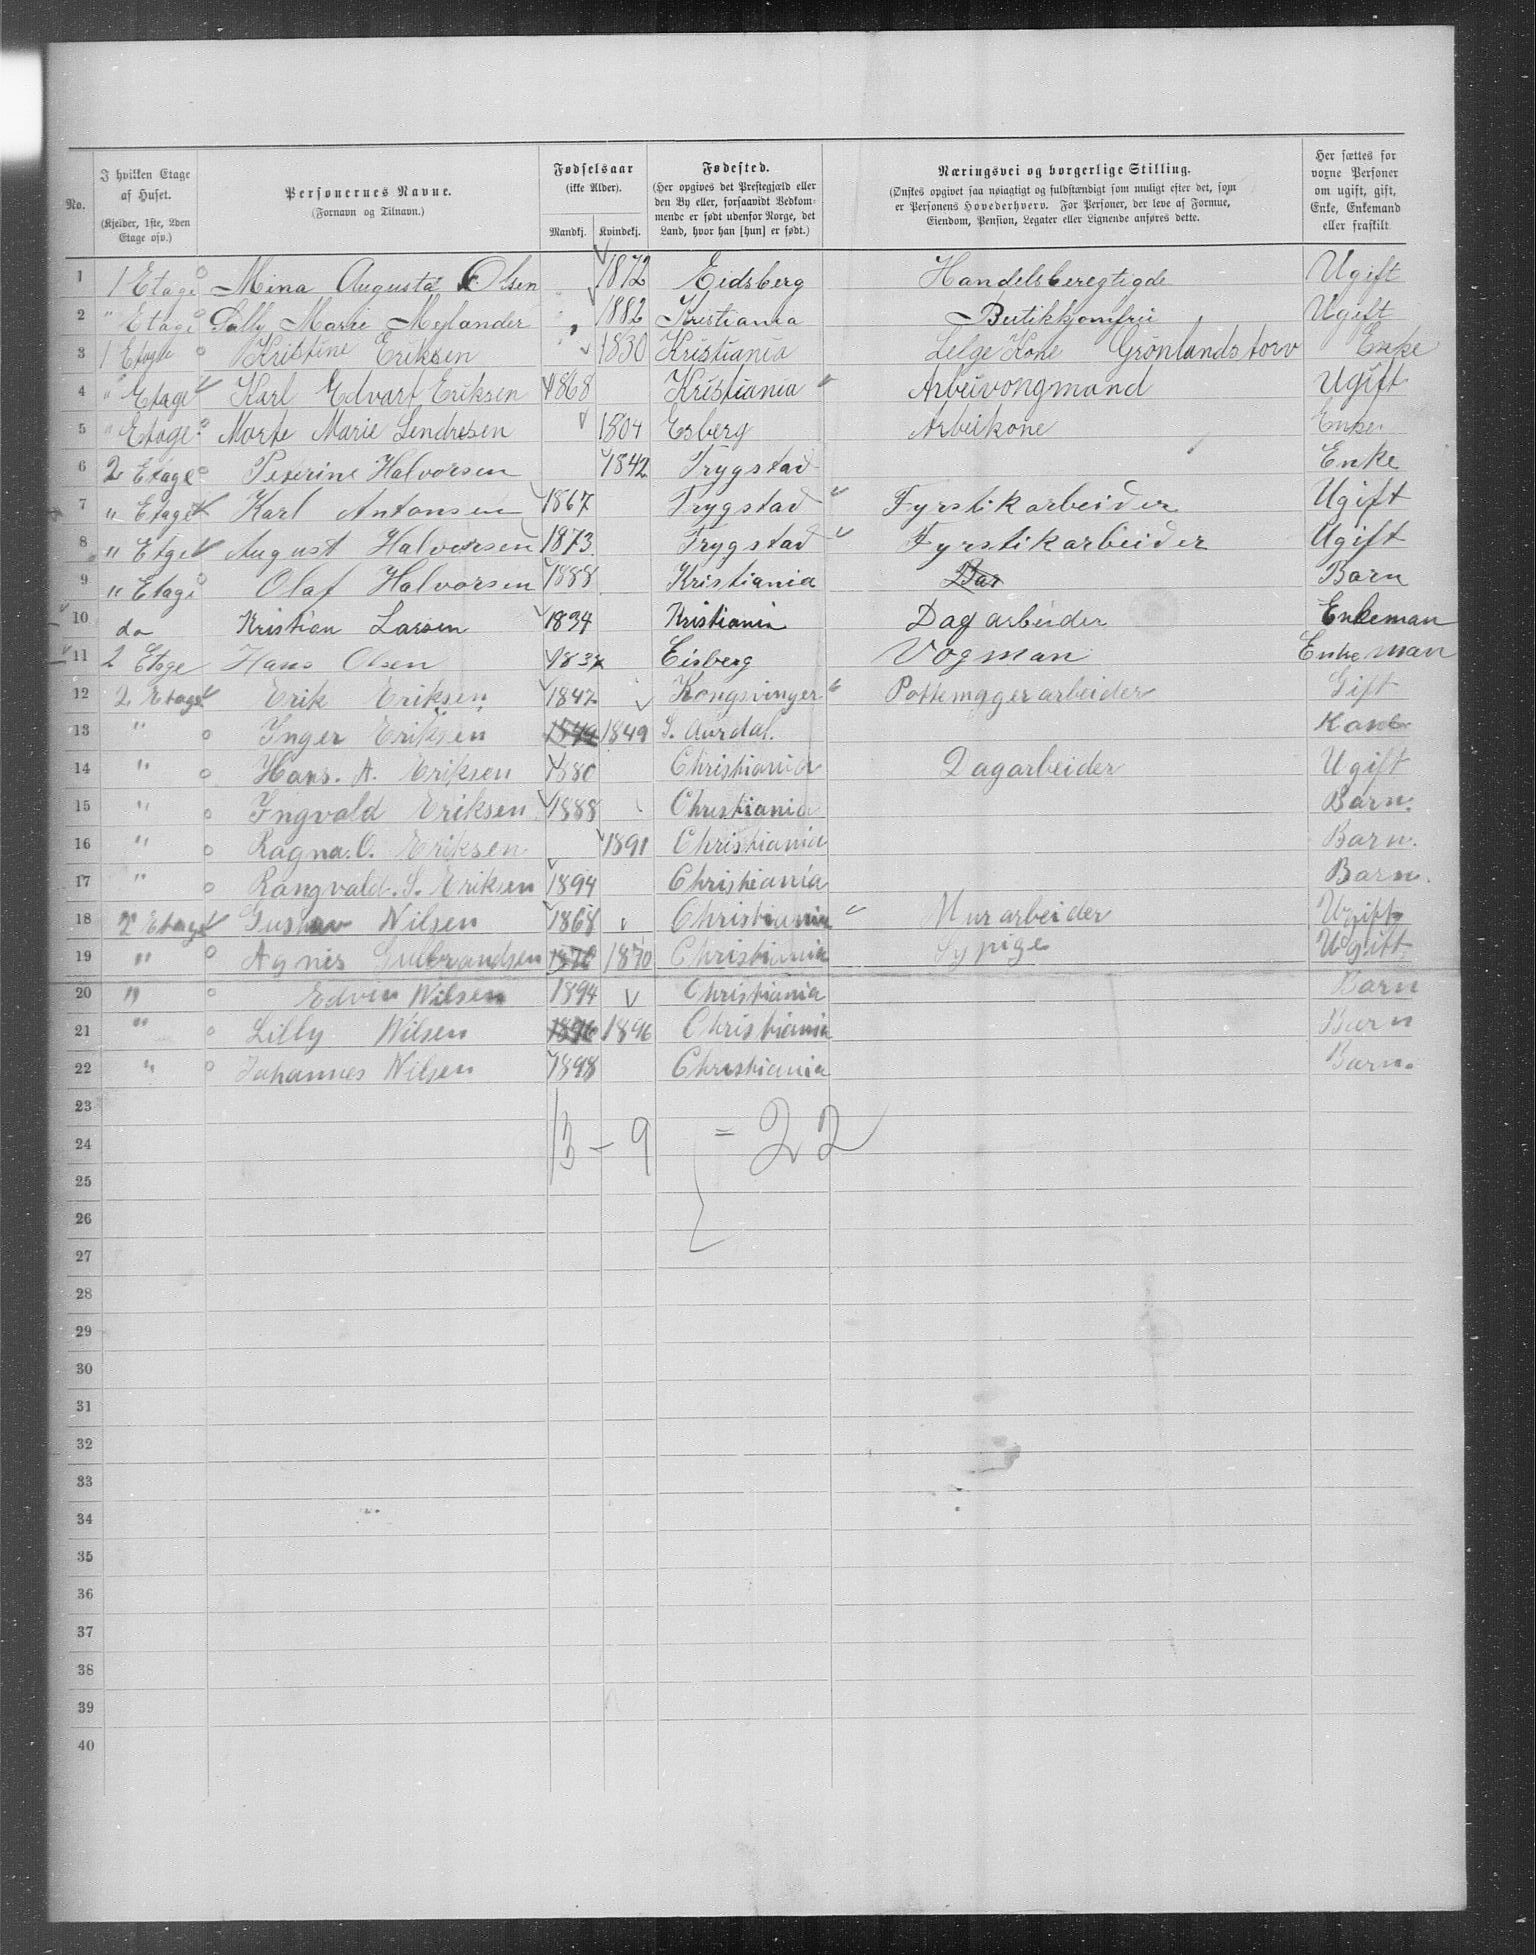 No. | I hvilken Etage af Huset. (Kjelder, 1ste, 2den Etage osv.) | Personernes Navne. (Fornavn og Tilnavn.) | Fødselsaar (ikke Alder). Mandkj. Kvindekj. | Fødested. (Her opgives det Prestegjæld eller den By eller, forsaavidt Vedkommende er født udenfor Norge, det Land, hvor han [hun] er født.) | Næringsvei og borgerlige Stilling. (Ønskes opgivet saa nøiagtigt og fuldstændigt som muligt efter det, som er Personens Hovederhverv. For Personer, der leve af Formue, Eiendom, Pension, Legater eller Lignende anføres dette.) | Her sættes for voxne Personer om ugift, gift, Enke, Enkemand eller fraskilt.
1 1 Etage Mina Augusta Olsen 1872 Eidsberg Handelsberegtigde Ugift
2 " Etage Sally Marie Mejlænder 1882 Kristiania Butikkjomfru Ugift
3 1 Etage Kristine Eriksen 1830 Kristiania Selge Kone Grönlandstorv Enke
4 " Etage Karl Edvart Eriksen 1868 Kristiania " Arbeivongmand Ugift
5 " Etage Morte Marie Sendresen 1804 Esberg Arbeikone Enke
6 2 Etage Peterine Halvorsen 1842 Trygstad Enke
7 " Etage Karl Antonsen 1867 Trygstad " Fyrstikarbeider Ugift
8 " Etge August Halvorsen 1873 Trygstad " Fyrstikarbeider Ugift
9 " Etage Olaf Halvorsen 1888 Kristiania Bar Barn
10 do Kristian Larsen 1834 Kristiania Dagarbeider Enkeman
11 2 Etage Hans Olsen 1837 Eisberg Vogman Enkeman
12 2 Etage Erik Eriksen 1842 Kongsvinger " Pottemagerarbeider Gift
13 " Inger Eriksen 1849 1849 S. Aurdal. Kone
14 " Hans. A. Eriksen 1880 Christiania Dagarbeider Ugift
15 " Ingvald Eriksen 1888 Christiania Barn.
16 " Ragna. O. Eriksen 1891 Christiania Barn.
17 " Rangvald. S. Eriksen 1894 Christiania Barn.
18 2 Etage Gustav Nilsen 1868 Christiania " Murarbeider Ugift
19 " Agnes Gulbrandsen 1870 1870 Christiania Sypige Ugift
20 " Edvin Nilsen 1894 Christiania Barn
21 " Lilly Nilsen 1896 1896 Christiania Barn
22 " Johannes Nilsen 1898 Christiania Barn.
23
24 13 - 9 = 22
25
26
27
28
29
30
31
32
33
34
35
36
37
38
39
40